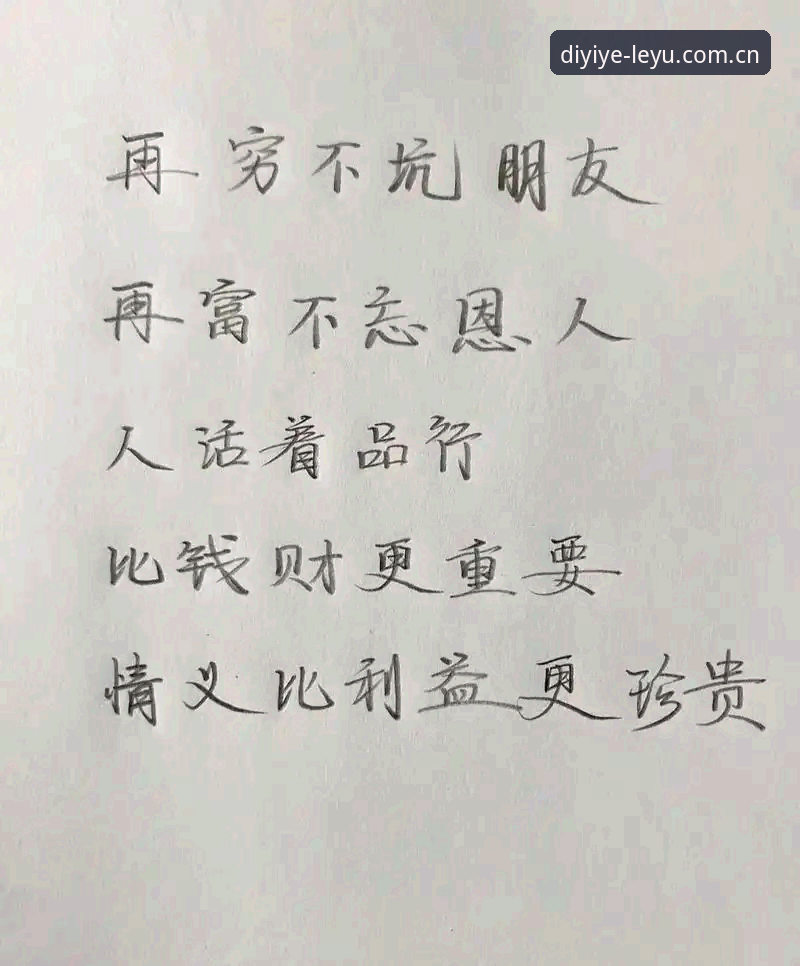 diyiye-leyu.com.cn
再穷不坑朋友
再富不忘恩人
人活着品行
比钱财更重要
情义比利益更珍贵